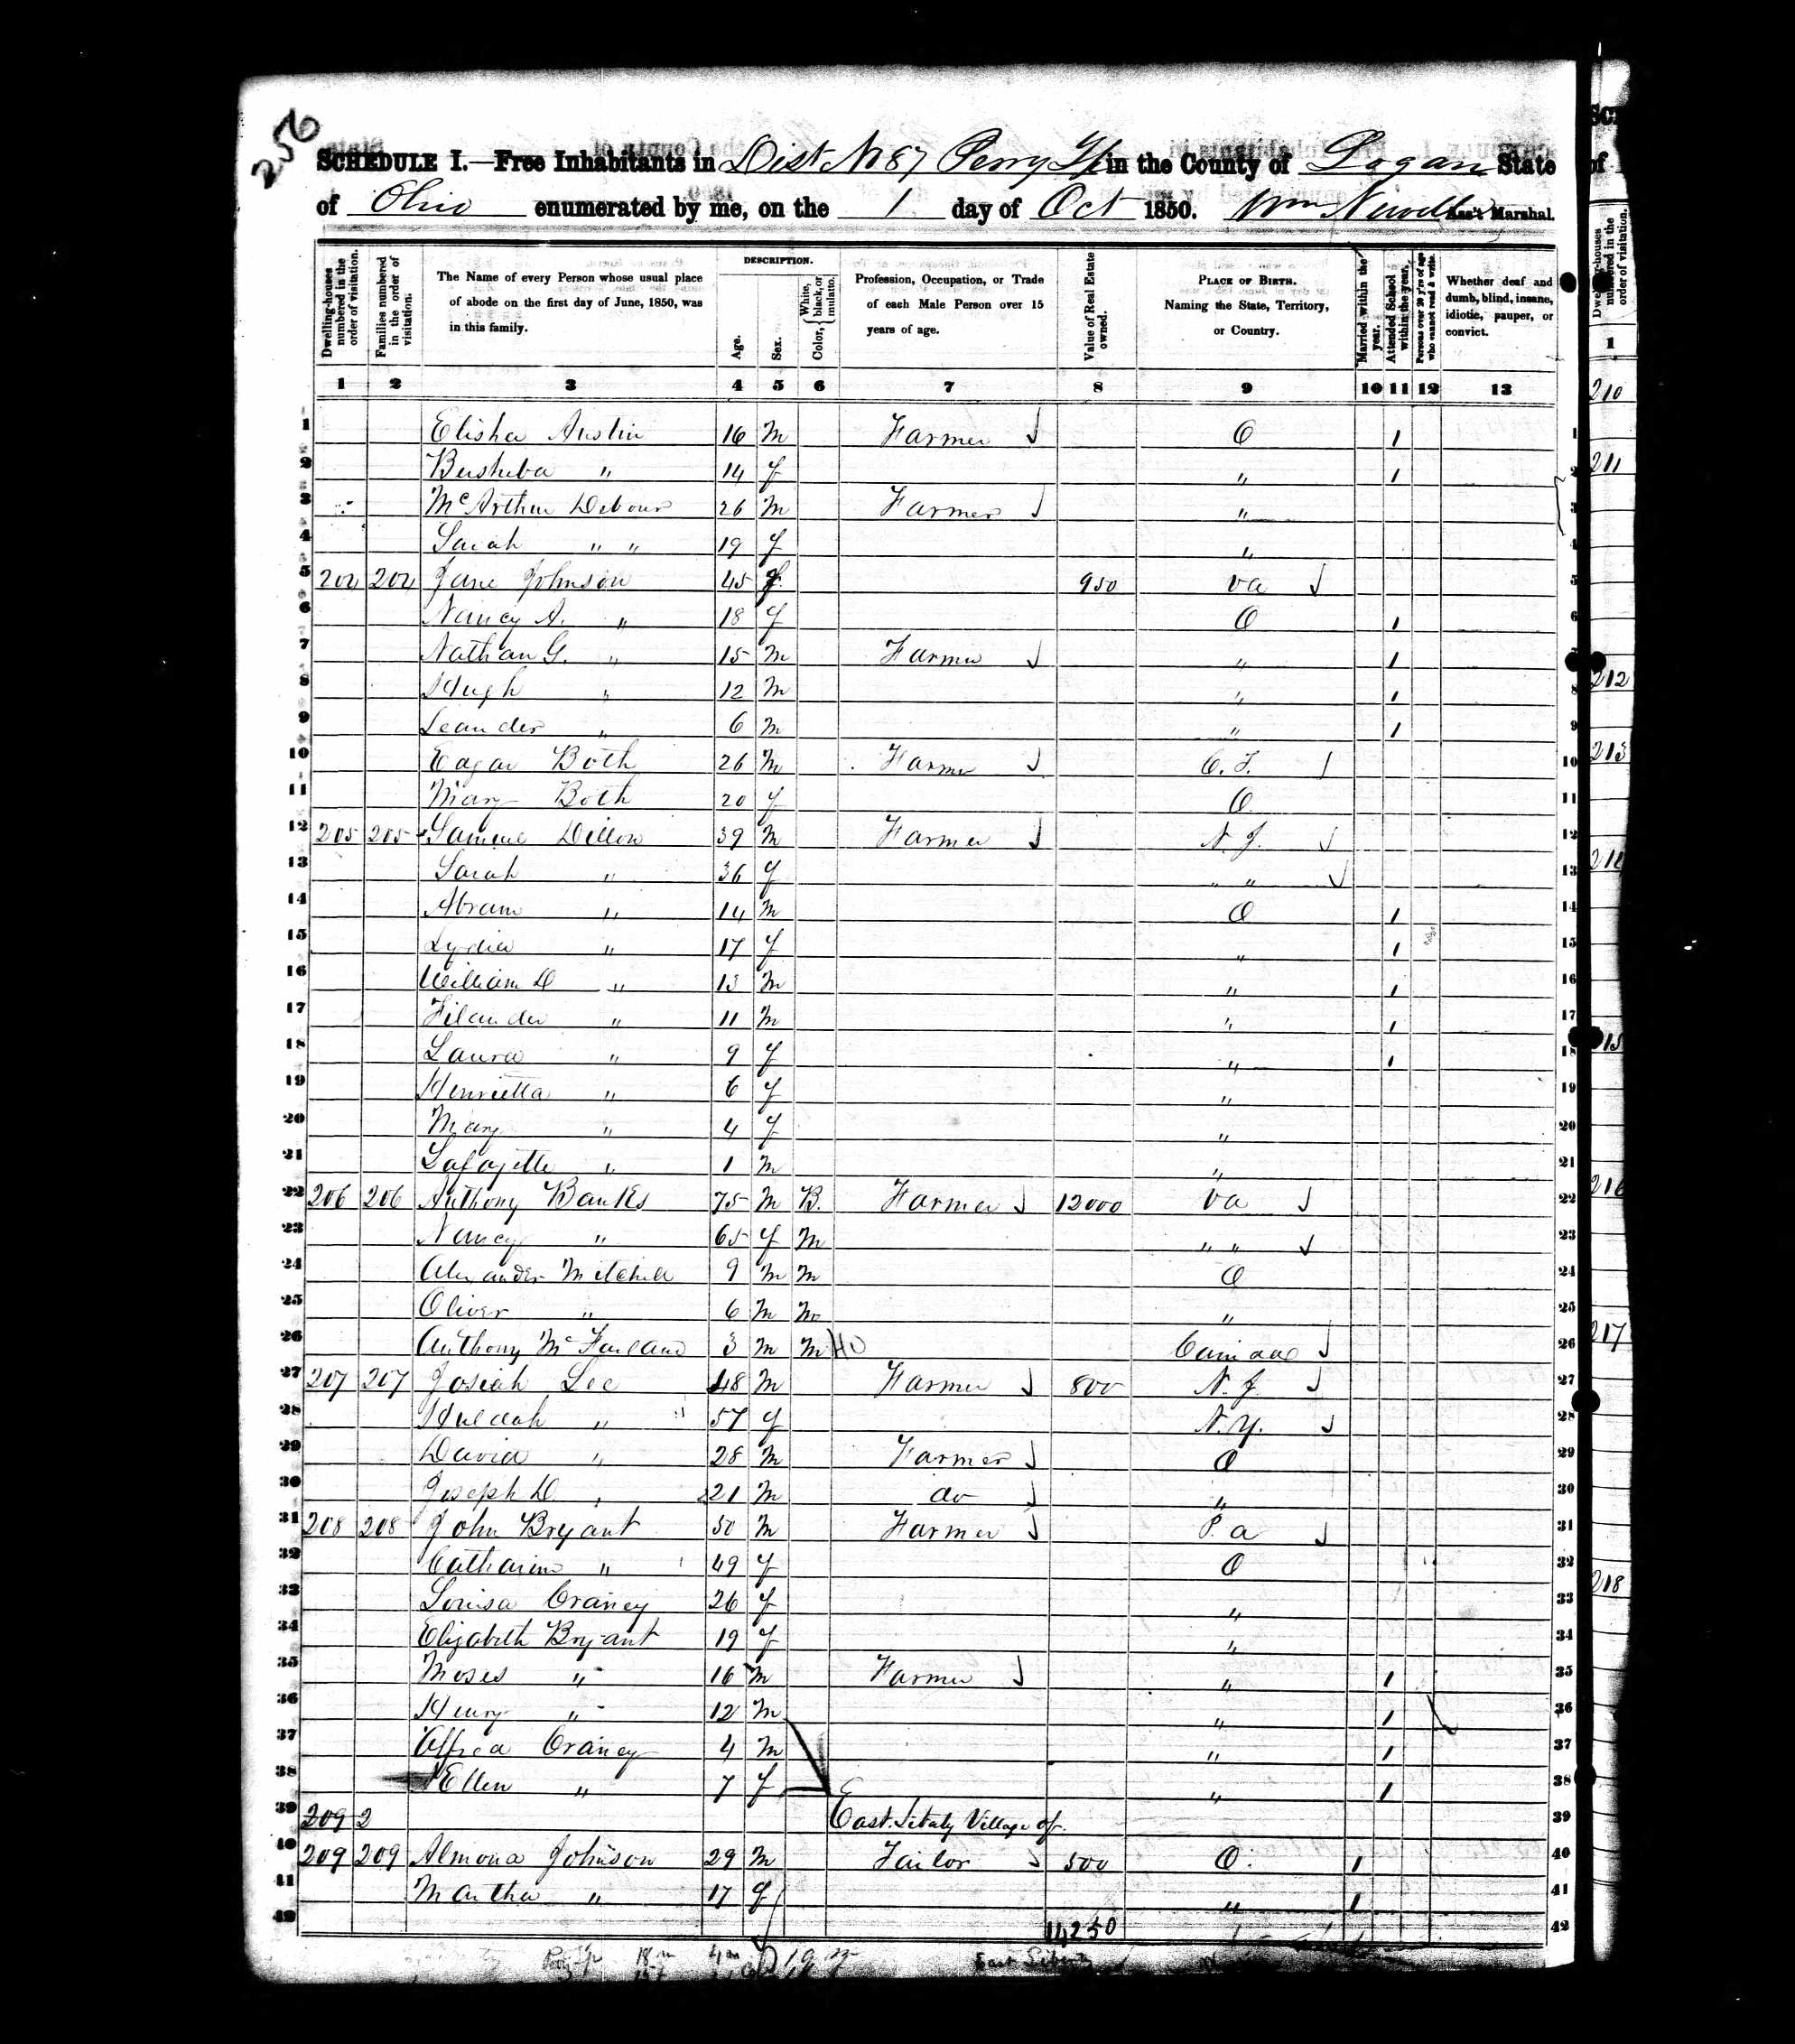 256
SCHEDULE I.—Free Inhabitants in Dist No 87 Perry Tp in the County of Logan State
of Ohio enumerated by me, on the 1 day of Oct 1850. Wm Newell Ass't Marshal.
Dwelling-houses numbered in the order of visitation.
Families numbered in the order of visitation.
The Name of every Person whose usual place of abode on the first day of June, 1850, was in this family.
DESCRIPTION.
Age.
Sex.
Color, White, black, or mulatto.
Profession, Occupation, or Trade of each Male Person over 15 years of age.
Value of Real Estate owned.
PLACE OF BIRTH. Naming the State, Territory, or Country.
Married within the year.
Attended School within the year.
Persons over 20 y'rs of age who cannot read & write.
Whether deaf and dumb, blind, insane, idiotic, pauper, or convict.
1 2 3 4 5 6 7 8 9 10 11 12 13
1 Elisha Austin 16 M Farmer O 1 1
2 14 f " 1 2
3 McArthur 26 M Farmer " 3
4 Sarah " " 19 f " 4
5 204 204 Jane Johnson 45 f 950 Va 5
6 Nancy A. " 18 f O 1 6
7 Nathan G. " 15 M Farmer " 1 7
8 Hugh " 12 M " 1 8
9 Leander " 6 M " 1 9
10 Both 26 M Farmer 10
11 Mary Both 20 f O 11
12 205 205 Samuel Dillon 39 M Farmer N. J. 12
13 Sarah " 36 f " " 13
14 Abram " 14 M O 1 14
15 Lydia " 17 f " 1 15
16 William D " 13 M " 1 16
17 Filander " 11 M " 1 17
18 Laura " 9 f " 1 18
19 Henrietta " 6 f " 19
20 Mary " 4 f " 20
21 Lafayette " 1 M " 21
22 206 206 Anthony Banks 75 M B. Farmer 12000 Va 22
23 Nancy " 65 f M " " 23
24 Alexander Mitchell 9 M M O 24
25 Oliver " 6 M M " 25
26 Anthony McFarland 3 M M 26
27 207 207 Josiah Lee 48 M Farmer 800 N. J. 27
28 Huldah " 57 f N. Y. 28
29 David " 28 M Farmer O 29
30 Joseph D " 21 M do " 30
31 208 208 John Bryant 50 M Farmer Pa 31
32 Catharine " 49 f O 32
33 Louisa Craney 26 f " 33
34 Elizabeth Bryant 19 f " 34
35 Moses " 16 M Farmer " 1 35
36 Henry " 12 M " 1 36
37 Craney 4 M " 1 37
38 Ellen " 7 f " 1 38
39 209 2 East Village of 39
40 209 209 Johnson 29 M Tailor 500 O. 1 40
41 Martha " 17 f " 1 41
42 14250 42
East Liberty
1
210
211
212
213
216
217
218